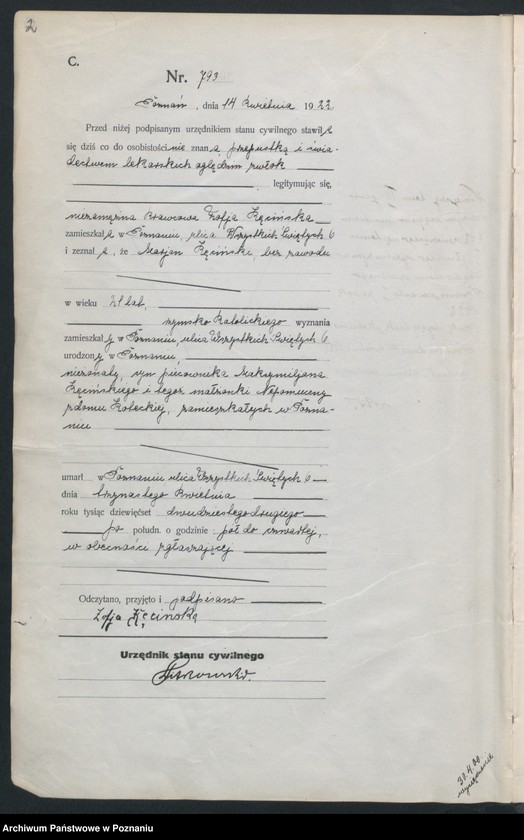 2
C.
Nr. 793
Poznań, dnia 14 kwietnia 1922
Przed niżej podpisanym urzędnikiem stanu cywilnego stawiła
się dziś co do osobistości nie znana, przepustką i świa-
dectwem lekarskich oględzin zwłok
legitymując się,
niezamężna krawcowa Zofja Kęcińska
zamieszkała w Poznaniu, ulica Wszystkich Świętych 6
i zeznała, że Marjan Kęciński bez zawodu
w wieku lat,
rzymsko katolickiego wyznania
zamieszkały w Poznaniu, ulica Wszystkich Świętych 6
urodzony w Poznaniu,
nieżonaty, syn piecownika Maksymiljana
Kęcińskiego i tegoż małżonki Nepomuceny
z domu, zamieszkałych w Pozna-
niu
umarł w Poznaniu ulica Wszystkich Świętych 6
dnia trzynastego kwietnia
roku tysiąc dziewięćset dwudziestego drugiego
po połudn. o godzinie pół do czwartej,
w obecności zgłaszającej
Odczytano, przyjęto i podpisano
Zofja Kęcińska
Urzędnik stanu cywilnego
30.4.00
Archiwum Państwowe w Poznaniu